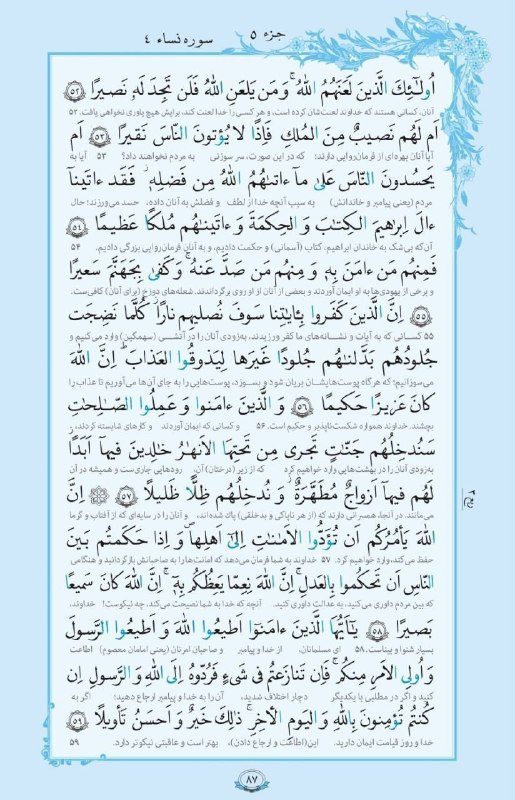 جزء ۵
سوره نساء ۴
اُولـٰٓئِكَ الَّذینَ لَعَنَهُمُ اللهُ ۚ وَ مَن یَلعَنِ اللهُ فَلَن تَجِدَ لَهُ نَصیرًا ﴿۵۲﴾
آنان، کسانی هستند که خداوند لعنت‌شان کرده است، و هر کسی را خدا لعنت کند، برایش هیچ یاوری نخواهی یافت. ۵۲
اَم لَهُم نَصیبٌ مِنَ المُلكِ فَاِذًا لا یُؤتونَ النّاسَ نَقیرًا ﴿۵۳﴾ اَم
آیا آنان بهره‌ای از فرمان‌روایی دارند؛ که در این صورت، سر سوزنی به مردم نخواهند داد؟ ۵۳ آیا به
یَحسُدونَ النّاسَ عَلیٰ ما ءاتـٰهُمُ اللهُ مِن فَضلِهِ ۖ فَقَد ءاتَینا
مردم (یعنی پیامبر و خاندانش) به سبب آنچه خدا از لطف و فضلش به آنان داده، حسد می‌ورزند؛ حال
ءالَ اِبرٰهیمَ الكِتـٰبَ وَ الحِكمَةَ وَ ءاتَینـٰهُم مُلكًا عَظیمًا ﴿۵۴﴾
آن‌که بی‌شک به خاندان ابراهیم، کتاب (آسمانی) و حکمت دادیم، و به آنان فرمان‌روایی بزرگی دادیم. ۵۴
فَمِنهُم مَن ءامَنَ بِهٖ وَ مِنهُم مَن صَدَّ عَنهُ ۚ وَ كَفیٰ بِجَهَنَّمَ سَعیرًا
و برخی از یهودی‌ها به او ایمان آوردند و بعضی از آنان از او روی برگرداندند. شعله‌های دوزخ (برای آنان) کافی‌ست.
﴿۵۵﴾ اِنَّ الَّذینَ كَفَروا بِـٔایـٰتِنا سَوفَ نُصلیهِم نارًا ۖ كُلَّما نَضِجَت
۵۵ کسانی که به آیات و نشانه‌های ما کفر ورزیدند، به‌زودی آنان را در آتشی (سهمگین) وارد می‌کنیم و
جُلودُهُم بَدَّلنـٰهُم جُلودًا غَیرَها لِیَذوقُوا العَذابَ ۗ اِنَّ اللهَ
می‌سوزانیم؛ که هرگاه پوست‌هایشان بریان شود و بسوزد، پوست‌هایی را به جای آن‌ها می‌آوریم تا عذاب را
كانَ عَزیزًا حَكیمًا ﴿۵۶﴾ وَ الَّذینَ ءامَنوا وَ عَمِلُوا الصّـٰلِحـٰتِ
بچشند. خداوند همواره شکست‌ناپذیر و حکیم است. ۵۶ و کسانی که ایمان آوردند و کارهای شایسته کردند،
سَنُدخِلُهُم جَنّـٰتٍ تَجری مِن تَحتِهَا الاَنهـٰرُ خـٰلِدینَ فیها اَبَدًا ۖ
به‌زودی آنان را در بهشت‌هایی وارد خواهیم کرد که از زیر (درختان) آن، رودهایی جاری‌ست و همیشه در آن
لَهُم فیها اَزواجٌ مُطَهَّرَةٌ ۖ وَ نُدخِلُهُم ظِلًّا ظَلیلًا ﴿۵۷﴾ اِنَّ
می‌مانند. در آنجا، همسرانی دارند که (از هر ناپاکی و بدخلقی) پاک شده‌اند، و آنان را در سایه‌ای که از آفتاب و گرما
اللهَ یَأمُرُكُم اَن تُؤَدُّوا الاَمـٰنـٰتِ اِلیٰٓ اَهلِها وَ اِذا حَكَمتُم بَینَ
حفظ می‌کند، وارد خواهیم کرد. ۵۷ خداوند به شما فرمان می‌دهد که امانت‌ها را به صاحبانش بازگردانید و هنگامی
النّاسِ اَن تَحكُموا بِالعَدلِ ۚ اِنَّ اللهَ نِعِمّا یَعِظُكُم بِهٖٓ ۗ اِنَّ اللهَ كانَ سَمیعًا
که بین مردم داوری می‌کنید، به عدالت داوری کنید. آنچه که خدا به شما نصیحت می‌کند، چه نیکوست! خداوند،
بَصیرًا ﴿۵۸﴾ یـٰٓاَیُّهَا الَّذینَ ءامَنوٓا اَطیعُوا اللهَ وَ اَطیعُوا الرَّسولَ
بسیار شنوا و بیناست. ۵۸ ای مسلمانان، از خدا و پیامبر و صاحبان امرتان (یعنی امامان معصوم) اطاعت
وَ اُولِی الاَمرِ مِنكُم ۖ فَاِن تَنازَعتُم فی شَیءٍ فَرُدّوهُ اِلَی اللهِ وَ الرَّسولِ اِن
کنید و اگر در مطلبی با یکدیگر دچار اختلاف شدید، آن را به خدا و پیامبر ارجاع دهید؛ اگر به
كُنتُم تُؤمِنونَ بِاللهِ وَ الیَومِ الأخِرِ ۚ ذٰلِكَ خَیرٌ وَ اَحسَنُ تَأویلًا ﴿۵۹﴾
خدا و روز قیامت ایمان دارید. این (اطاعت و ارجاع دادن)، بهتر است و عاقبتی نیکوتر دارد. ۵۹
۸۷